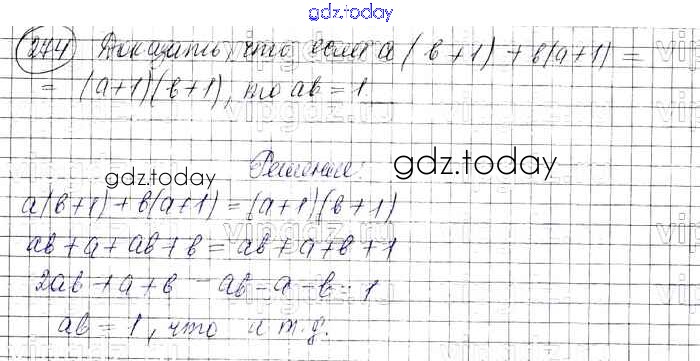 gdz.today
274 Доказать, что если a(b+1)+b(a+1)=
=(a+1)(b+1), то ab=1.
Решение:
gdz.today
gdz.today
a(b+1)+b(a+1)=(a+1)(b+1)
ab+a+ab+b=ab+a+b+1
2ab+a+b-ab-a-b=1
ab=1, что и т.д.